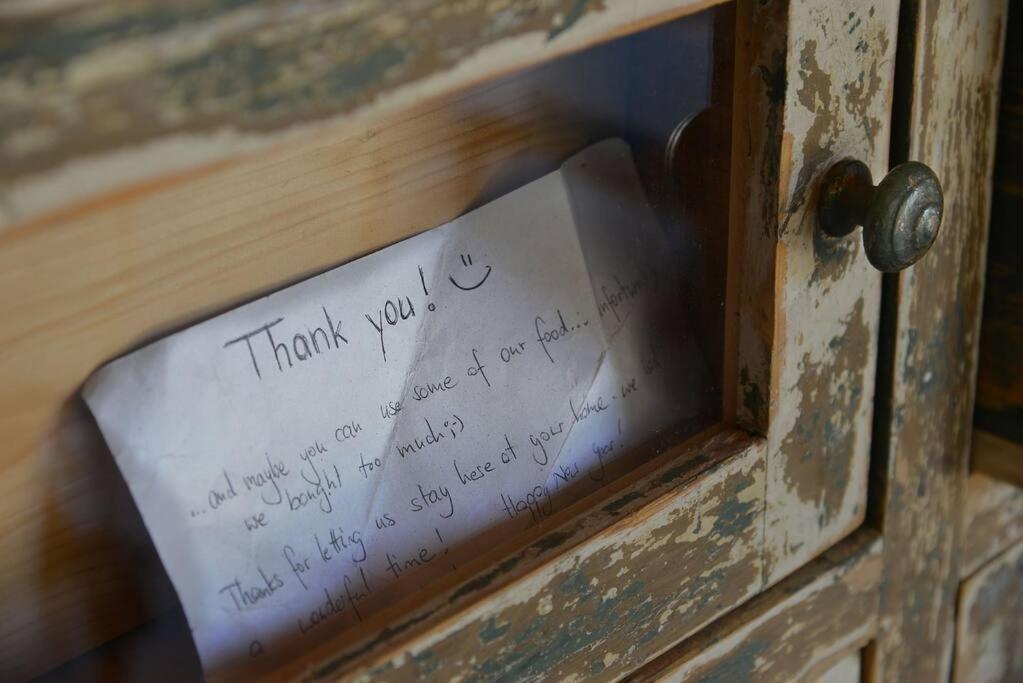 Thank you! :)
...and maybe you can use some of our food...
we bought too much ;-)
Thanks for letting us stay here at your home - we
a wonderful time! Happy New Year!